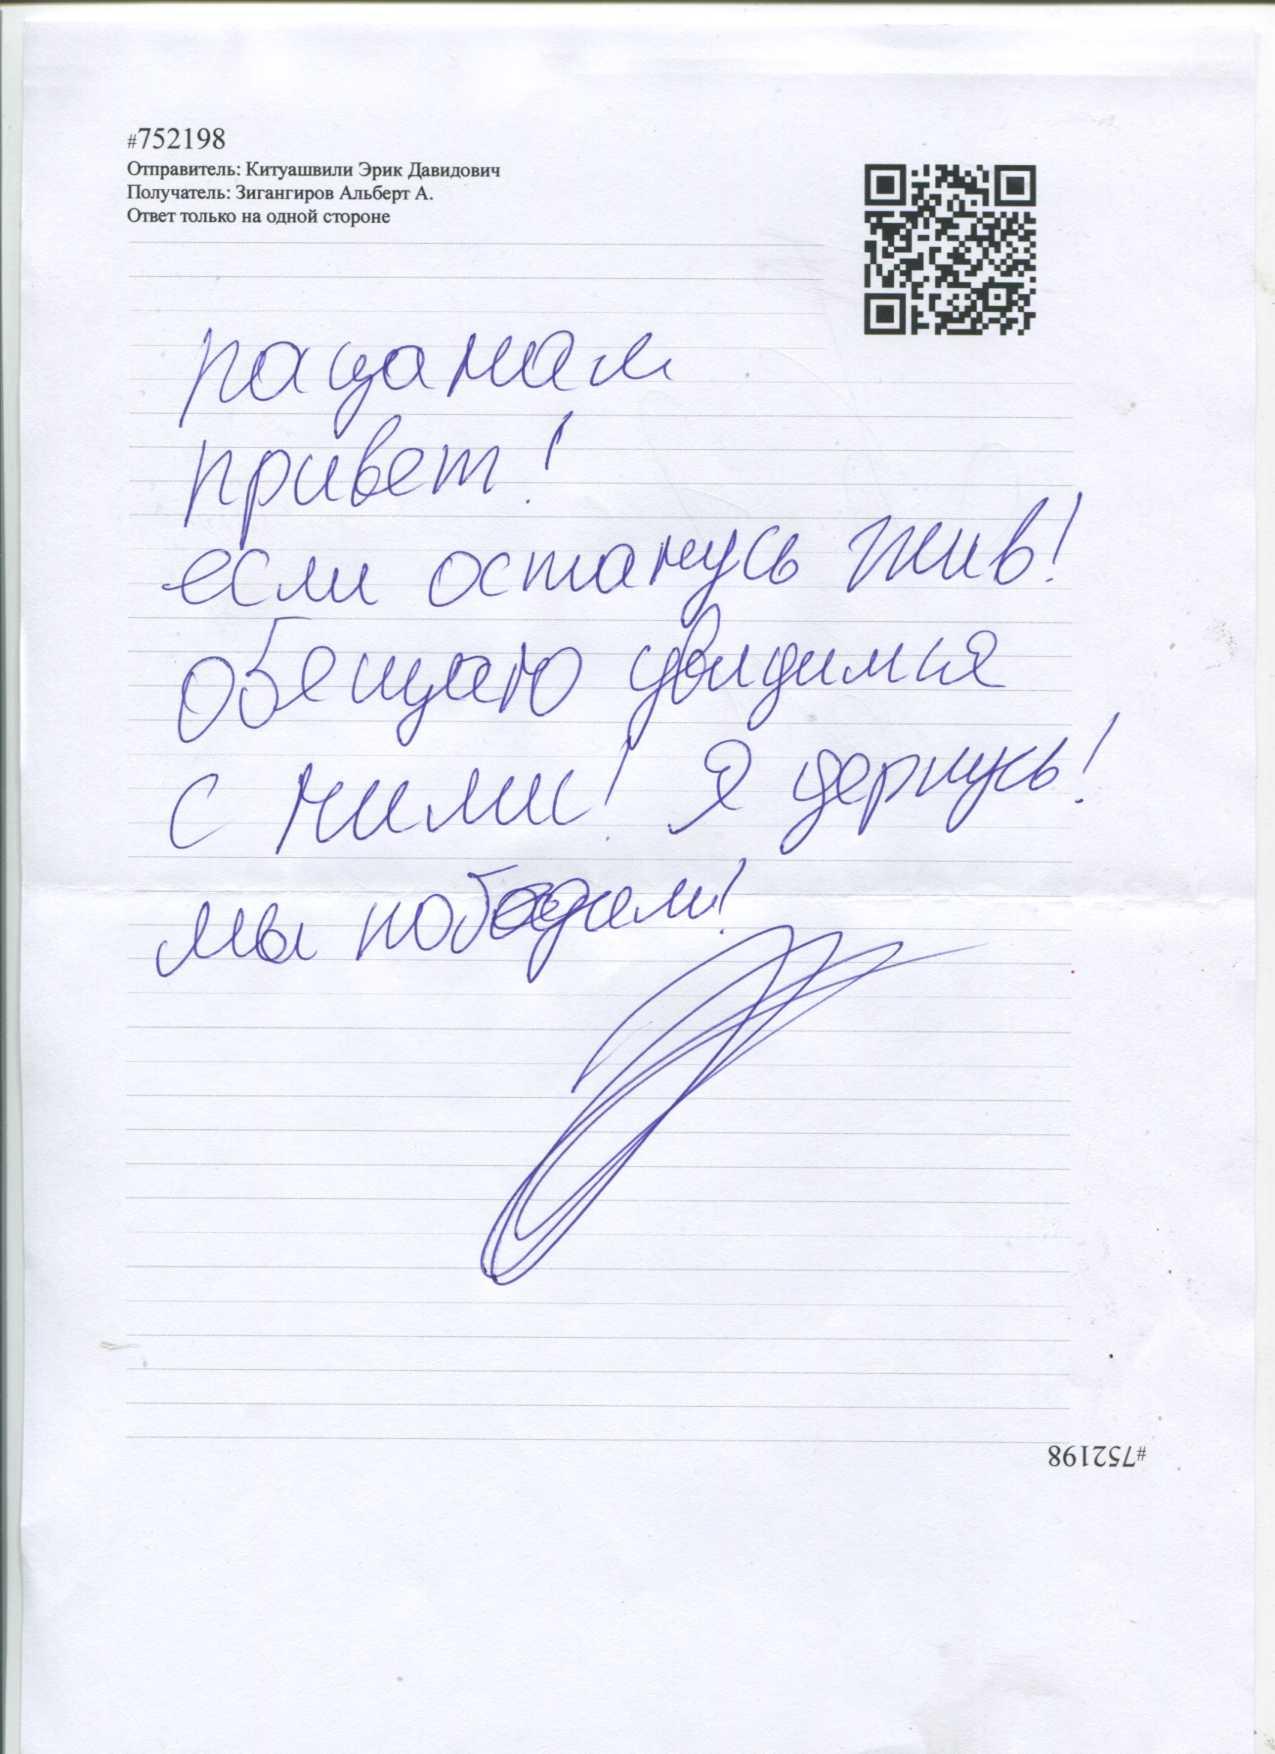 #752198
Отправитель: Китуашвили Эрик Давидович
Получатель: Зигангиров Альберт А.
Ответ только на одной стороне
пацанам
привет!
если останусь жив!
обещаю увидимся
с ними! Я держусь!
мы победим!
#752198